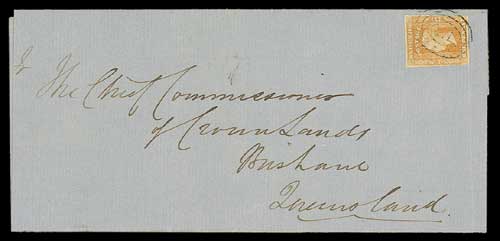 To The Chief Commissioner
of Crown Lands
Brisbane
Queensland.